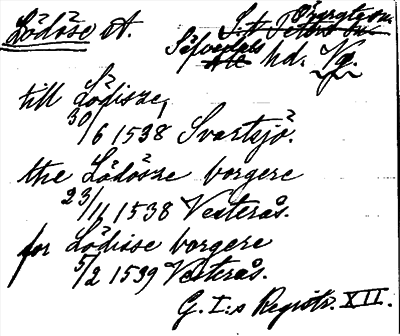 Lödöse st.
S:t Peters sn.
Säfvedals
Ale hd. Vg.
till Lödisze,
30/6 1538 Svartsjö.
the Lödösze borgere
23/11 1538 Vesterås.
for Lödisse borgere
5/2 1539 Vesterås.
G. I:s Registr. XII.